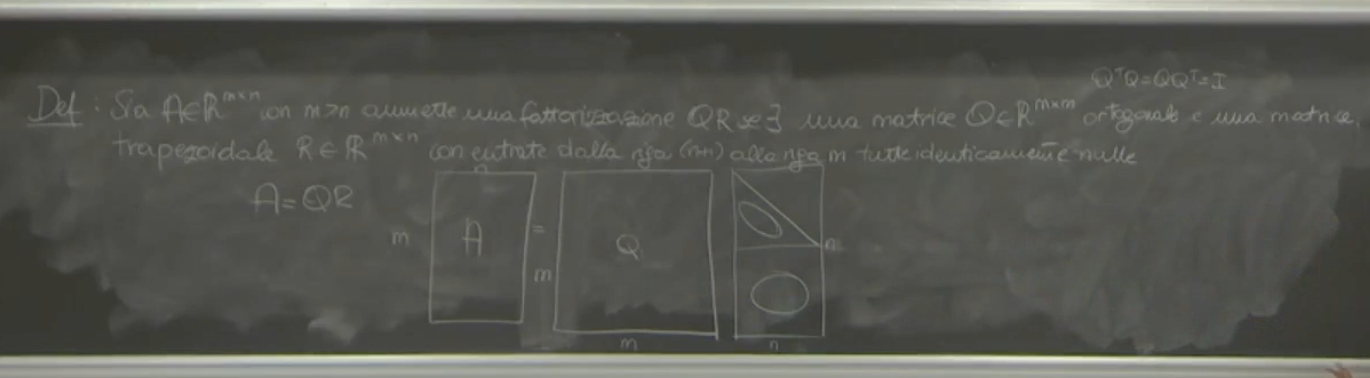 QᵀQ=QQᵀ=I
Def: Sia A∈ℝ^{m×n} con m>n ammette una fattorizzazione QR se ∃ una matrice Q∈ℝ^{m×m} ortogonale e una matrice
trapezoidale R∈ℝ^{m×n} con entrate dalla riga (n+1) alla riga m tutte identicamente nulle
A=QR
n
m A = Q n
m
m n